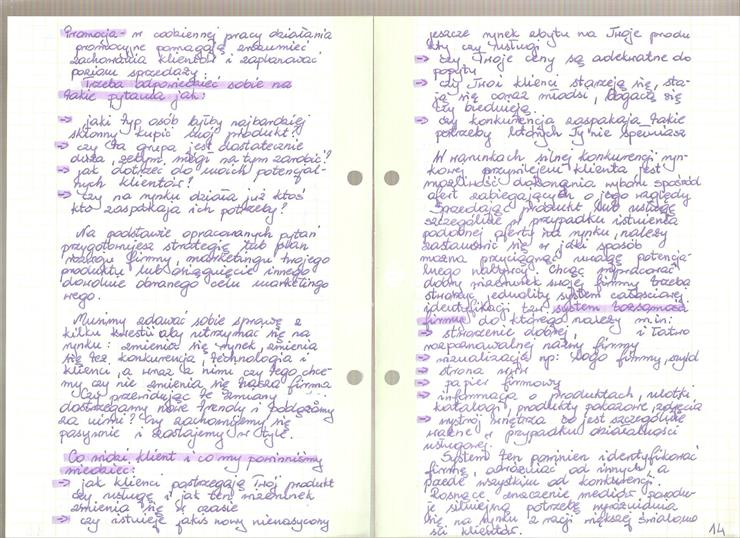 Promocja - w codziennej pracy działania
promocyjne pomagają zrozumieć
zachowania klientów i zaplanować
poziom sprzedaży
Trzeba odpowiedzieć sobie na
takie pytania jak:
→ jaki typ osób byłby najbardziej
skłonny kupić mój produkt?
→ czy ta grupa jest dostatecznie
duża, żebym mógł na tym zarobić?
→ jak dotrzeć do moich potencjal-
nych klientów?
→ czy na rynku działa już ktoś
kto zaspakaja ich potrzeby?
Na podstawie opracowanych pytań
przygotowujesz strategię lub plan
rozwoju firmy, marketingu twojego
produktu lub osiągnięcie innego
dowolnie obranego celu marketingo
wego.
Musimy zdawać sobie sprawę z
kilku kwestii aby utrzymać się na
rynku: zmienia się rynek, zmienia
się też konkurencja, technologia i
klienci, a wraz z nimi czy tego chce-
my czy nie zmienia się nasza firma
Czy przewidując te zmiany
dostrzegamy nowe trendy i podążamy
za nimi? Czy zachowujemy się
pasywnie i zostajemy w tyle.
Co widzi klient i co my powinniśmy
wiedzieć:
→ jak klienci postrzegają Twój produkt
czy usługę i jak ten wizerunek
zmienia się w czasie
→ czy istnieje jakiś nowy nienasycony
jeszcze rynek zbytu na Twoje produ
kty czy usługi
→ czy Twoje ceny są adekwatne do
popytu
→ czy Twoi klienci starzeją się, sta-
ją się coraz młodsi, bogacą się
czy biednieją.
→ czy konkurencja zaspakaja takie
potrzeby których Ty nie spełniasz
W warunkach silnej konkurencji ryn-
kowej przywilejem klienta jest
możliwość dokonania wyboru spośród
ofert zabiegających o jego względy
Sprzedając produkt lub usługę
szczególnie w przypadku istnienia
podobnej oferty na rynku, należy
zastanowić się w jaki sposób
można przyciągnąć uwagę potencja-
lnego nabywcy. Chcąc wypracować
dobry wizerunek swojej firmy trzeba
stworzyć jednolity system całościowej
identyfikacji tzw. system tożsamości
firmy do którego należy m.in:
→ stworzenie dobrej, i łatwo
rozpoznawalnej nazwy firmy
→ wizualizacja np: logo firmy, szyld
→ strona www
→ papier firmowy
→ informacja o produktach, ulotki
katalogi, produkty pokazowe, zdjęcia
→ wystrój wnętrza co jest szczególnie
ważne w przypadku działalności
usługowej.
System ten powinien identyfikować
firmę, odróżniać od innych a
przede wszystkim od konkurencji.
Rosnące znaczenie mediów powodu-
je silniejszą potrzebę wyróżniania
się na rynku z racji większej świadomo
ści klientów.
14